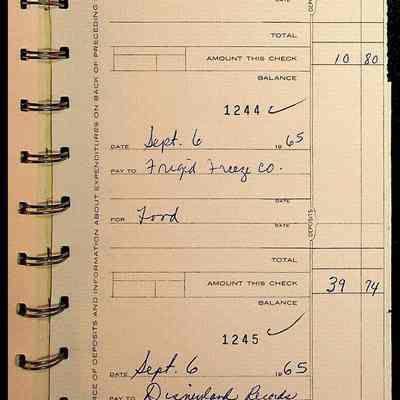 DATE
TOTAL
AMOUNT THIS CHECK 10 80
BALANCE
1244
DATE Sept. 6 1965
PAY TO Frigid Freeze Co.
DATE
FOR Food
DATE
TOTAL
AMOUNT THIS CHECK 39 74
BALANCE
1245
DATE Sept. 6 1965
PAY TO Disneyland Records
DEPOSITS
OF DEPOSITS AND INFORMATION ABOUT EXPENDITURES ON BACK OF PRECEDING